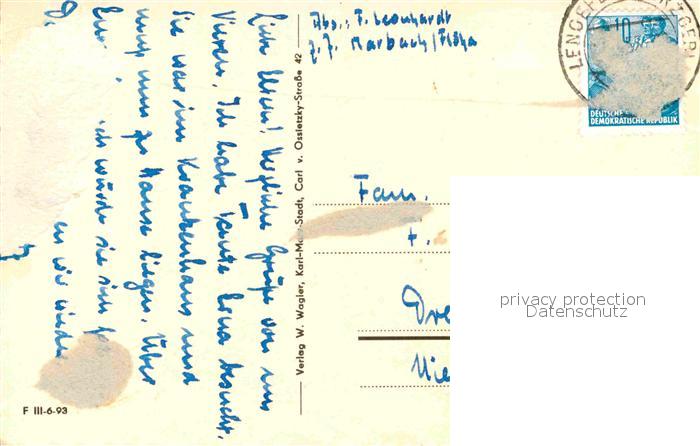 Abs.: F. Leonhardt
z. Z. Marbach/Flöha
LENGEFE
10
DEUTSCHE
DEMOKRATISCHE REPUBLIK
Liebe Herzliche Grüße von uns
Vieren. Ich habe heute besucht.
Sie war im Krankenhaus und
muß nun zu Hause liegen. Über
würde sie sich
wir wieder
Verlag W. Wagler, Karl-Ma Stadt, Carl v. Ossietzky-Straße 42
F III-6-93
Fam.
Dre
privacy protection
Datenschutz